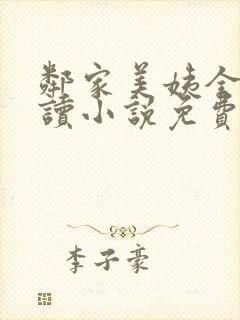 鄰家美姨全
讀小說免費
李子豪